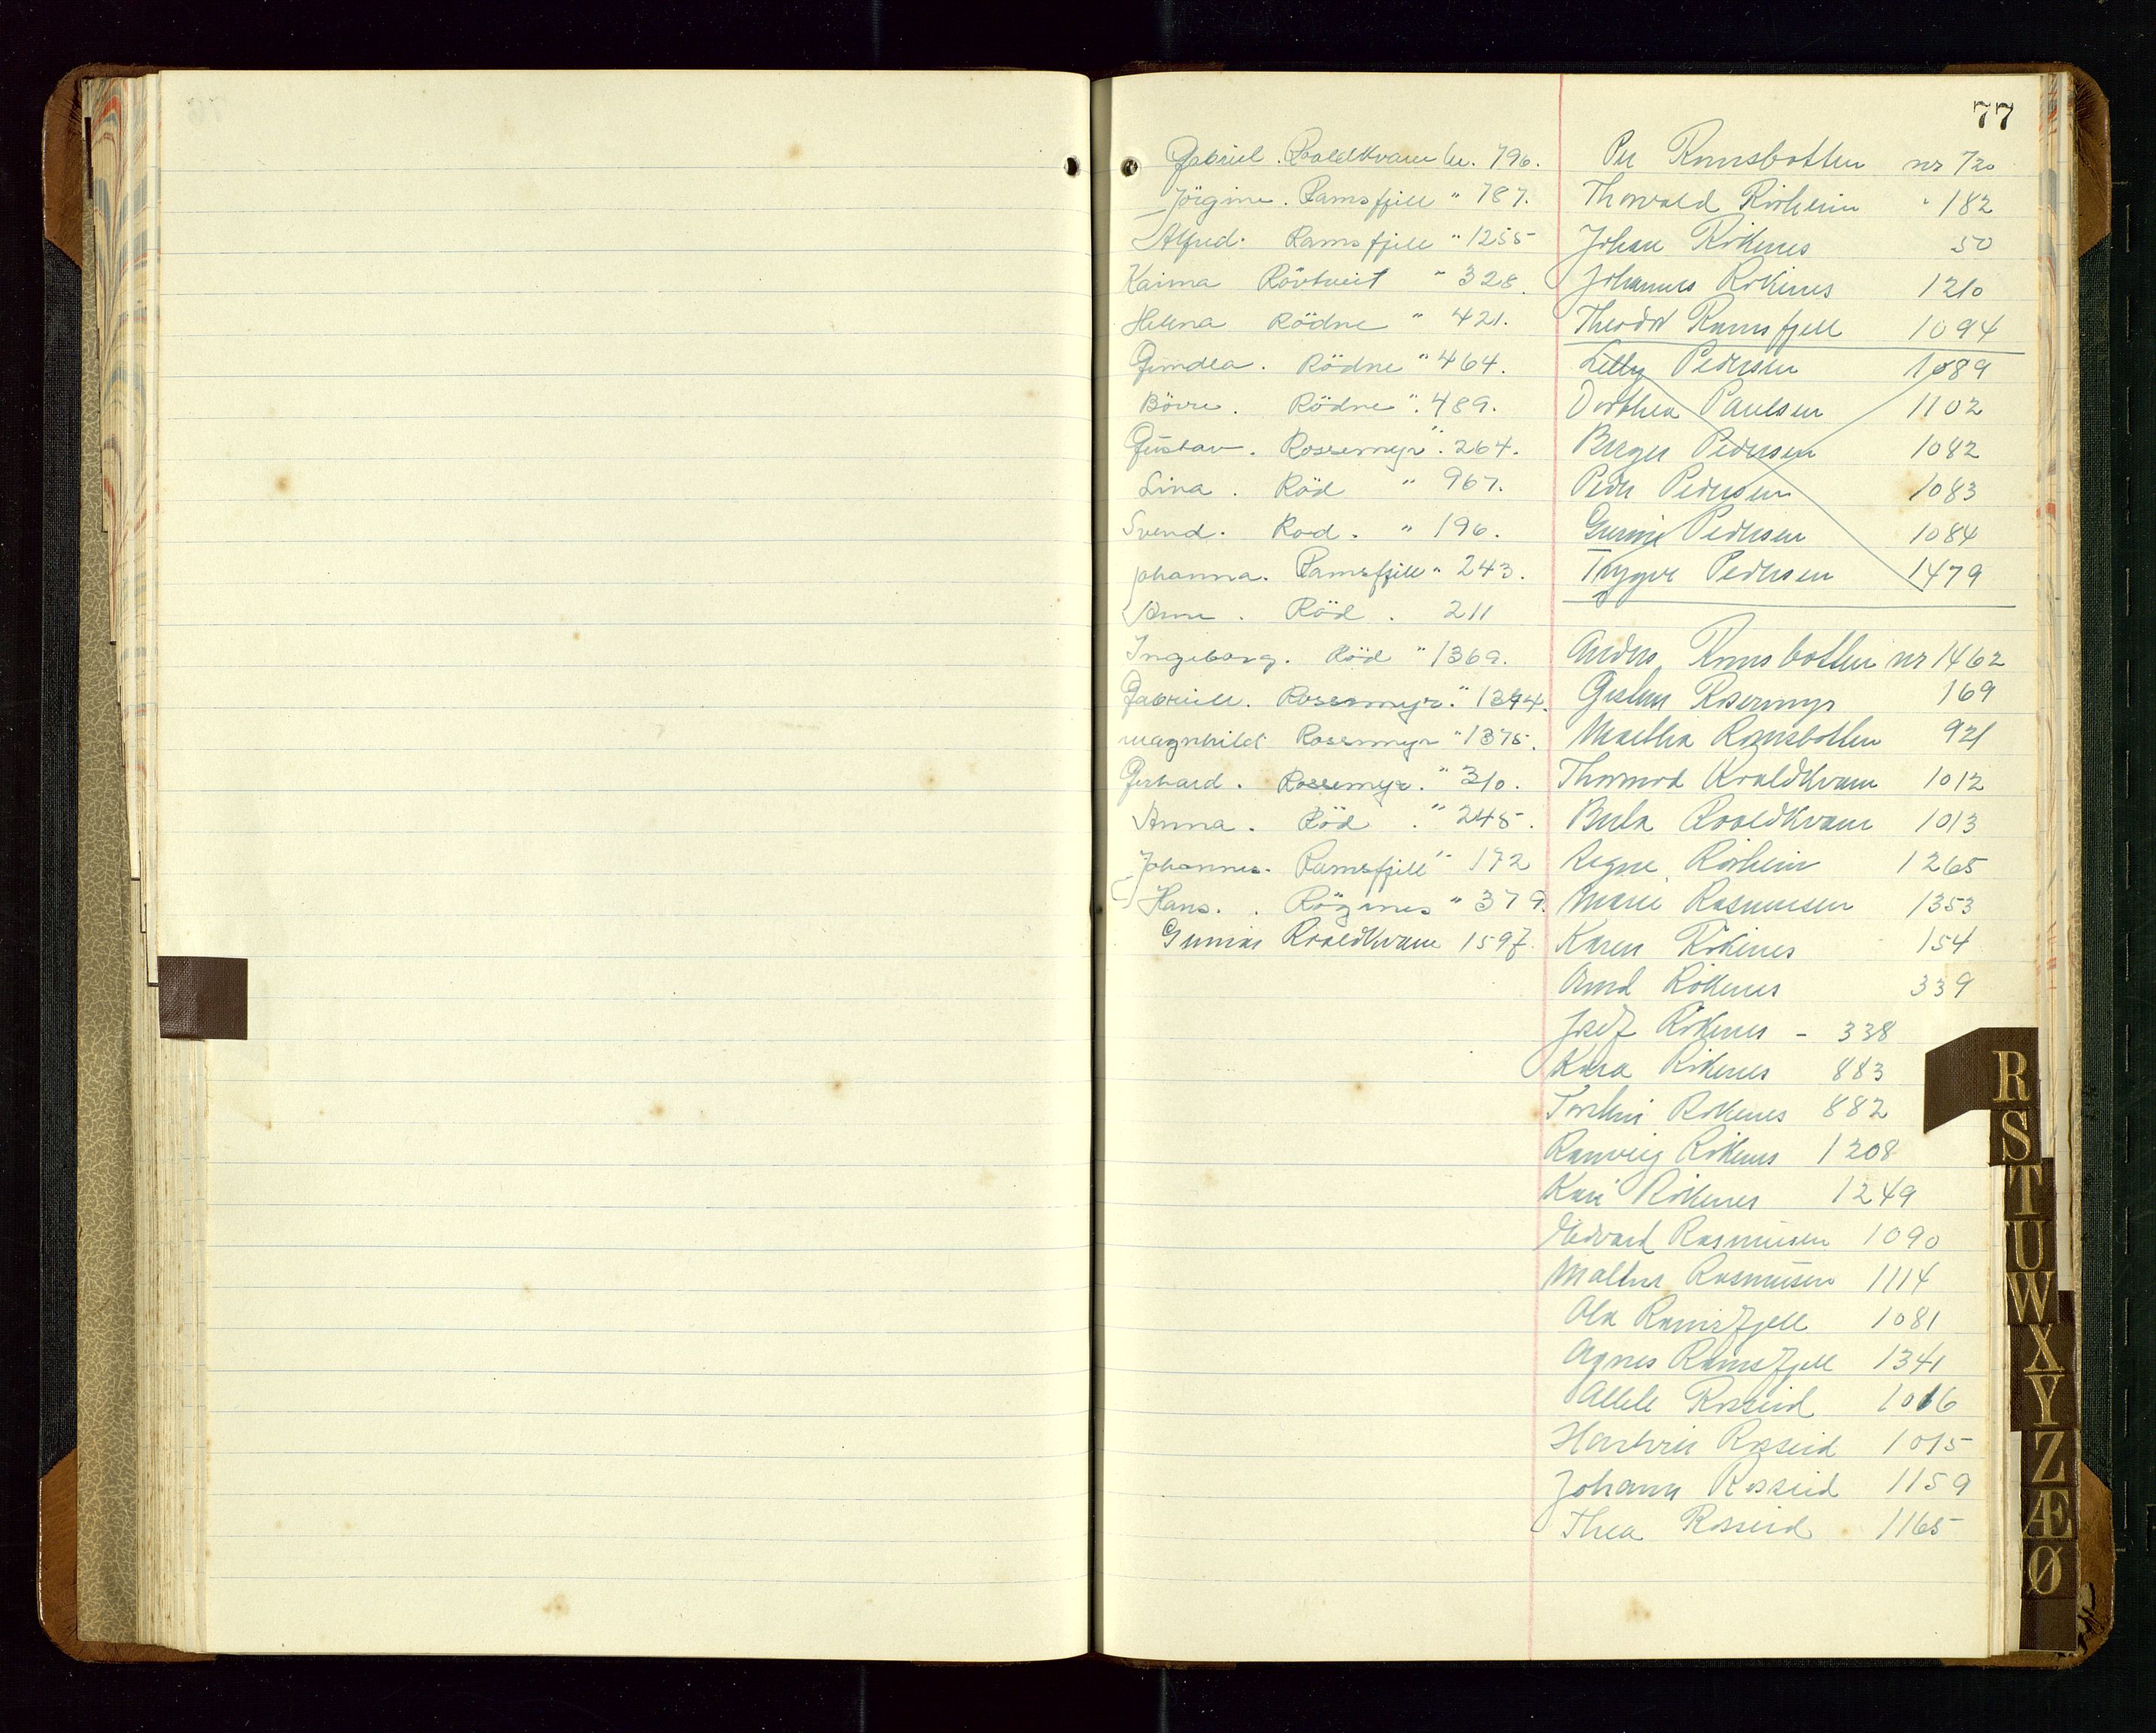 77
Gabriel. Roaldkvam nr. 796.
Jörgine. Ramsfjell " 787.
Alfred. Ramsfjell " 1255
Kaima Rövtveit " 328.
Helena Rödne " 421.
Gundla. Rödne " 464.
Bövre. Rödne ". 489.
Gustav. Rossemyr ". 264.
Lina. Röd " 967.
Svend. Rod. " 196.
Johanna. Ramsfjell " 243.
Anne. Röd. 211
Ingeborg. Röd " 1369.
Gabriell. Rossemyr. " 1394.
magnhild Rossmyr " 1375.
Gerhard. Rossemyr. " 310.
Anna. Röd. " 245.
Johannes. Ramsfjell " 172
Hans. Rögnes " 379.
Gunnar Roaldkvam 1597.
Per Ramsbotten nr 720
Thorvald Rörheim " 182
Johan Rökenes 50
Johannes Rökenes 1210
Theodor Ramsfjell 1094
Lilly Pedersen 1089
Dorthea Paulsen 1102
Birger Pedersen 1082
Peder Pedersen 1083
Gunnie Pedersen 1084
Trygve Pedersen 1479
Anders Ramsbotten nr 1462
Gustav Rosemyr 169
Martha Ramsbotten 921
Thormod Roaldkvam 1012
Berta Roaldkvam 1013
Signe Rörheim 1265
Marie Rasmussen 1353
Karen Rökenes 154
Arnd Rökenes 339
Josef Rökenes - 338
Kara Rökenes 883
Torleiv Rökenes 882
Ranveig Rökenes 1208
Kari Rökenes 1249
Edvard Rasmussen 1090
Malene Rasmussen 1114
Ola Ramsfjell 1081
Agnes Ramsfjell 1341
Adele Rosseid 1016
Hartvik Rosseid 1015
Johann Rosseid 1159
Thea Rosseid 1165
R
S
T
U
W
X
Y
Z
Æ
Ø